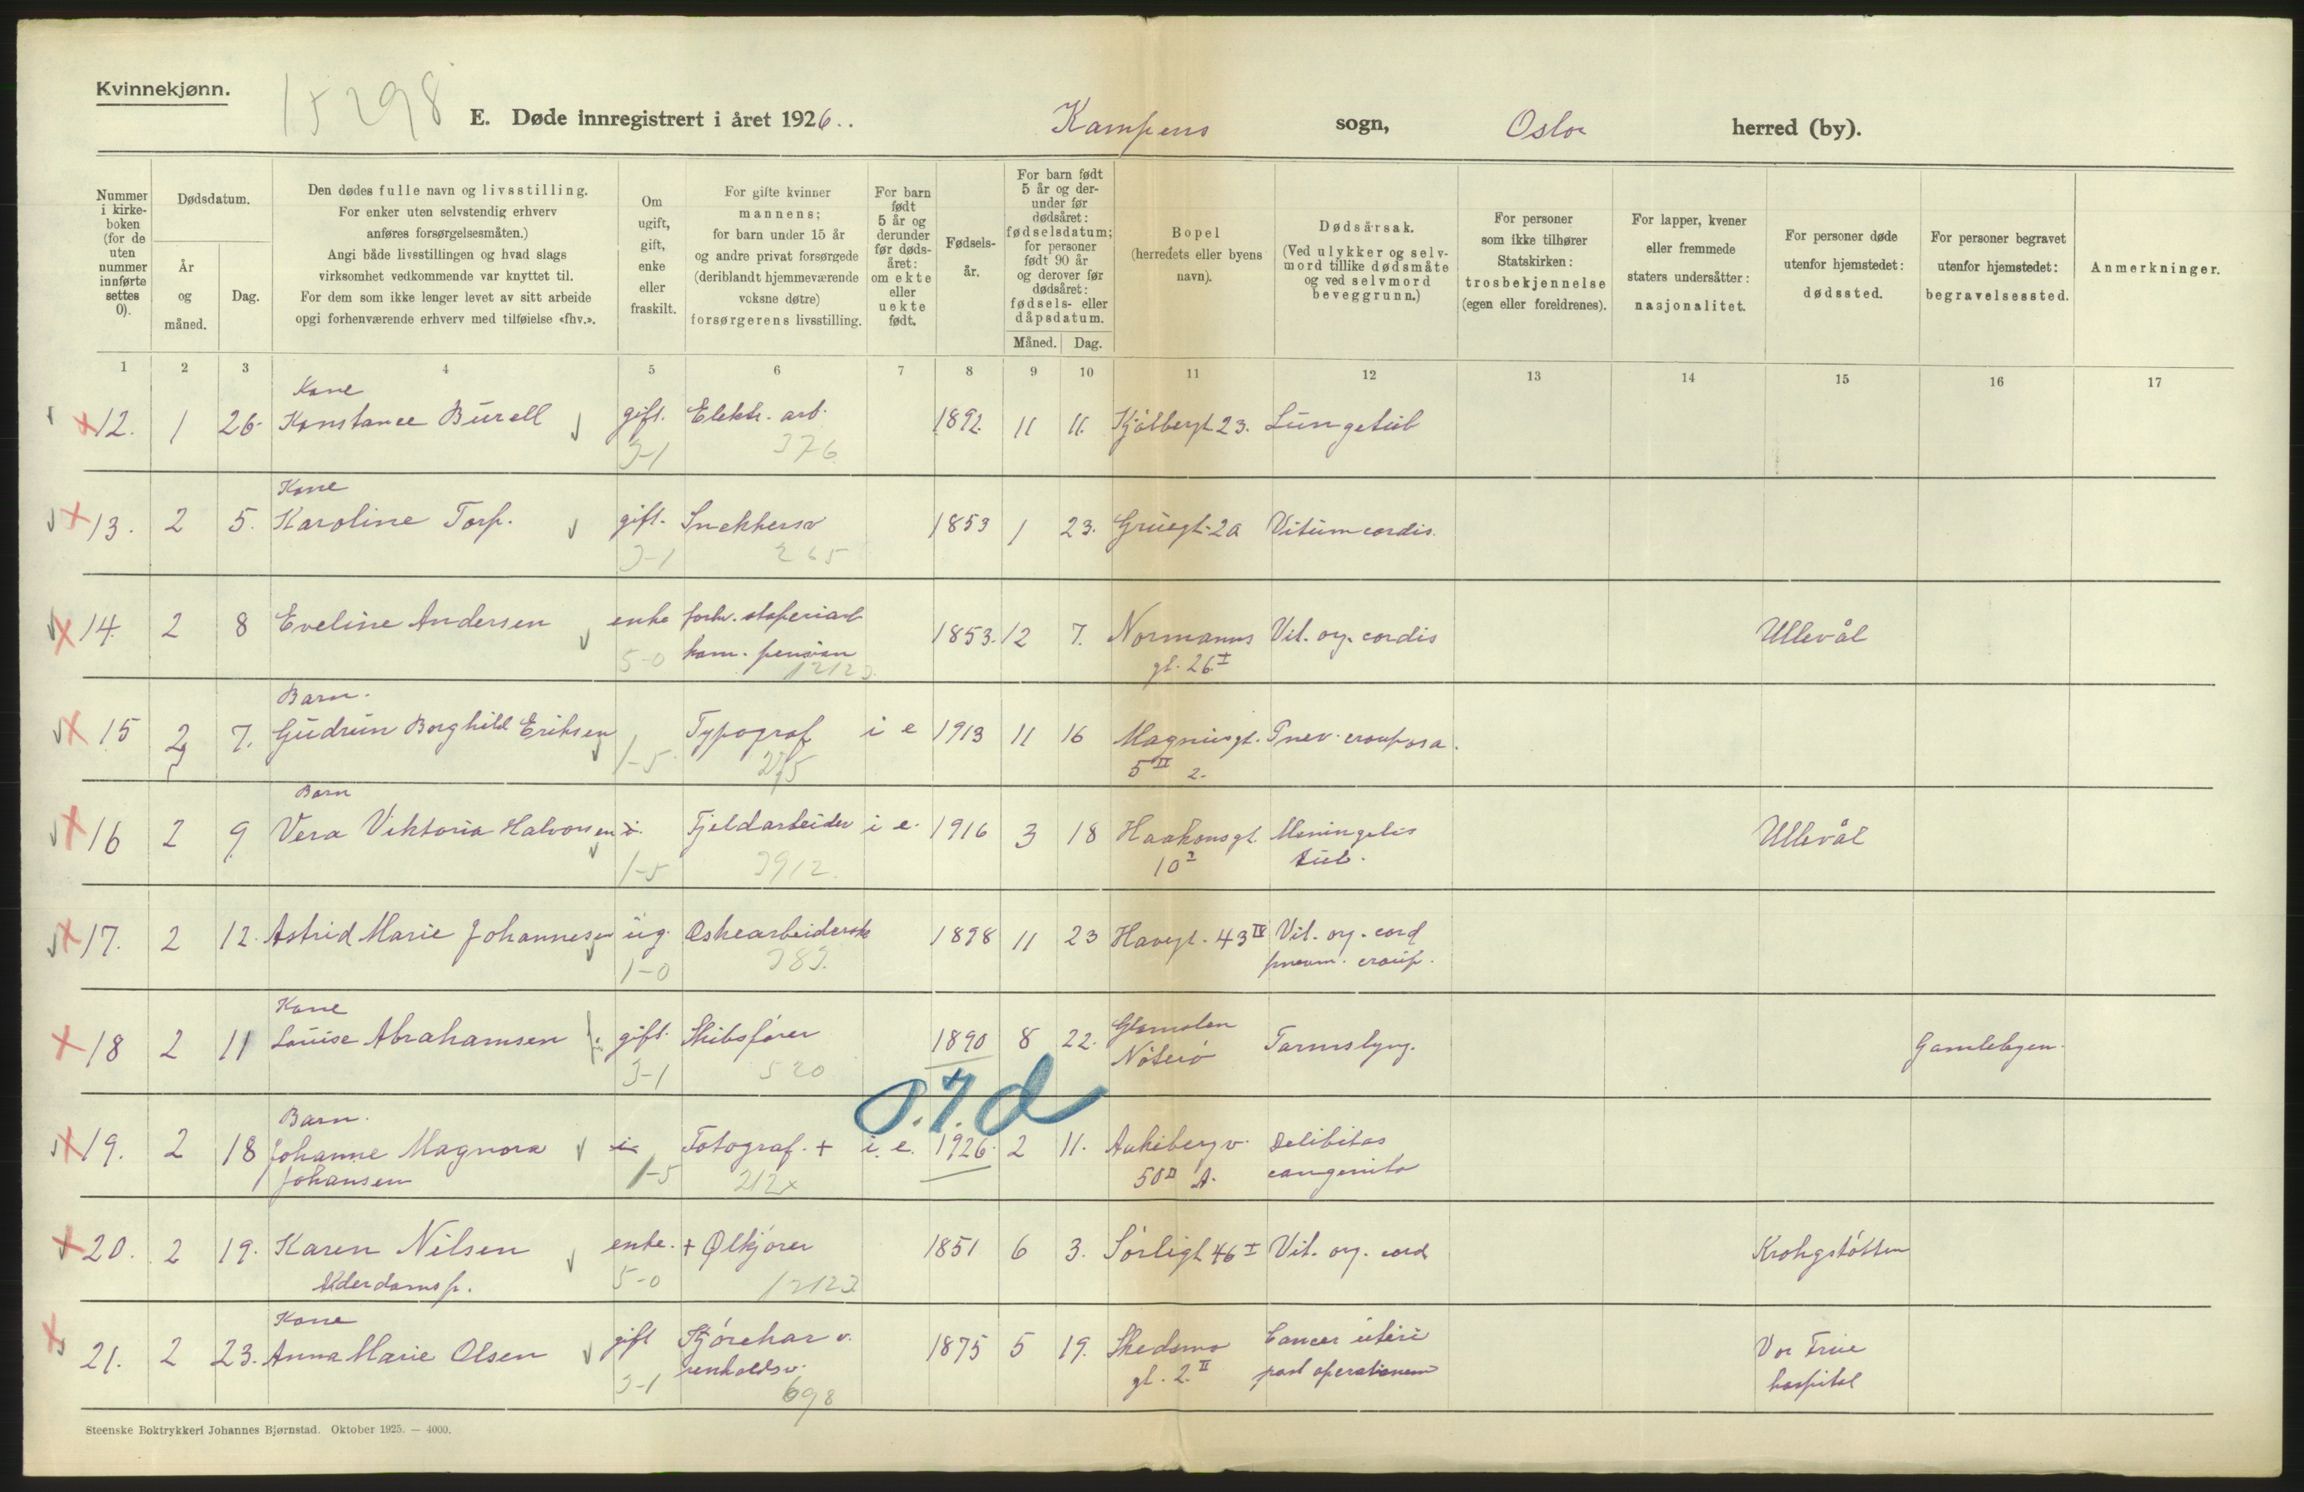 Kvinnekjønn.
15298
E. Døde innregistrert i året 1926.. Kampens sogn, Oslo herred (by).
Nummer i kirke-boken (for de uten nummer innførte settes 0).
Dødsdatum.
År og måned.
Dag.
Den dødes fulle navn og livsstilling.
For enker uten selvstendig erhverv
anføres forsørgelsesmåten.)
Angi både livsstillingen og hvad slags
virksomhet vedkommende var knyttet til.
For dem som ikke lenger levet av sitt arbeide
opgi forhenværende erhverv med tilføielse «fhv.».
Om ugift, gift, enke eller fraskilt.
For gifte kvinner
mannens;
for barn under 15 år
og andre privat forsørgede
(deriblandt hjemmeværende
voksne døtre)
forsørgerens livsstilling.
For barn født 5 år og derunder før døds-året: om ekte eller uekte født.
Fødsels-år.
For barn født 5 år og der-under før dødsåret: fødselsdatum; for personer født 90 år og derover før dødsåret: fødsels- eller dåpsdatum.
Måned. Dag.
Bopel
(herredets eller byens
navn).
Dødsårsak.
(Ved ulykker og selv-
mord tillike dødsmåte
og ved selvmord
beveggrunn.)
For personer
som ikke tilhører
Statskirken:
trosbekjennelse
(egen eller foreldrenes).
For lapper, kvener
eller fremmede
staters undersåtter:
nasjonalitet.
For personer døde
utenfor hjemstedet:
dødssted.
For personer begravet
utenfor hjemstedet:
begravelsessted.
Anmerkninger.
1 2 3 4 5 6 7 8 9 10 11 12 13 14 15 16 17
Kone
12. 1 26. Konstance Burell gift. Elektr. arb. 1892 11 11. Kjølbergt 23. Lungetub
3-1 376
Kone
13. 2 5. Karoline Torp. gift. Snekkersv 1853 1 23. Gruegt. 2a Vitium cordis.
3-1 265
14. 2 8 Eveline Andersen enke forhv. støperiarb 1853. 12 7. Normanns Vit. org. cordis Ullevål
5-0 kom. pension gt. 26 I
12123
Barn.
15 2 7. Gudrun Borghild Eriksen Typograf i e 1913 11 16 Magnusgt. Pnev. crouposa.
1-5 275 5 II 2.
Barn
16 2 9 Vera Viktoria Halvorsen Fjeldarbeider i e. 1916 3 18 Haakonsgt. Meningitis Ullevål
1-5 3912. 10 I tub.
17. 2 12. Astrid Marie Johannesen ug. Eskearbeiderske 1898 11 23 Havegt. 43 IV Vit. org. cord
1-0 383. pneum. croup.
Kone
18 2 11 Louise Abrahamsen gift. Skibsfører 1890 8 22. Nøterø Tarmslyng. Gamlebyen.
3-1 520
Barn.
19. 2 18 Johanne Magnora Fotograf. + i. e. 1926. 2 11. Debilitas
Johansen 1-5 212x 50 II A. congenita
20. 2 19. Karen Nilsen enke. + Ølkjører 1851 6 3. Sørligt 46 I Vit. org. cord Krohgstøtten
Alderdomsp. 5-0 12123
Kone
21. 2 23. Anna Marie Olsen gift 1875 5 19. Skedsmo Cancer uteri Vor Frue
3-1 renholdsv. gt. 2. II post operationem hospital
698
Steenske Boktrykkeri Johannes Bjørnstad. Oktober 1925. — 4000.